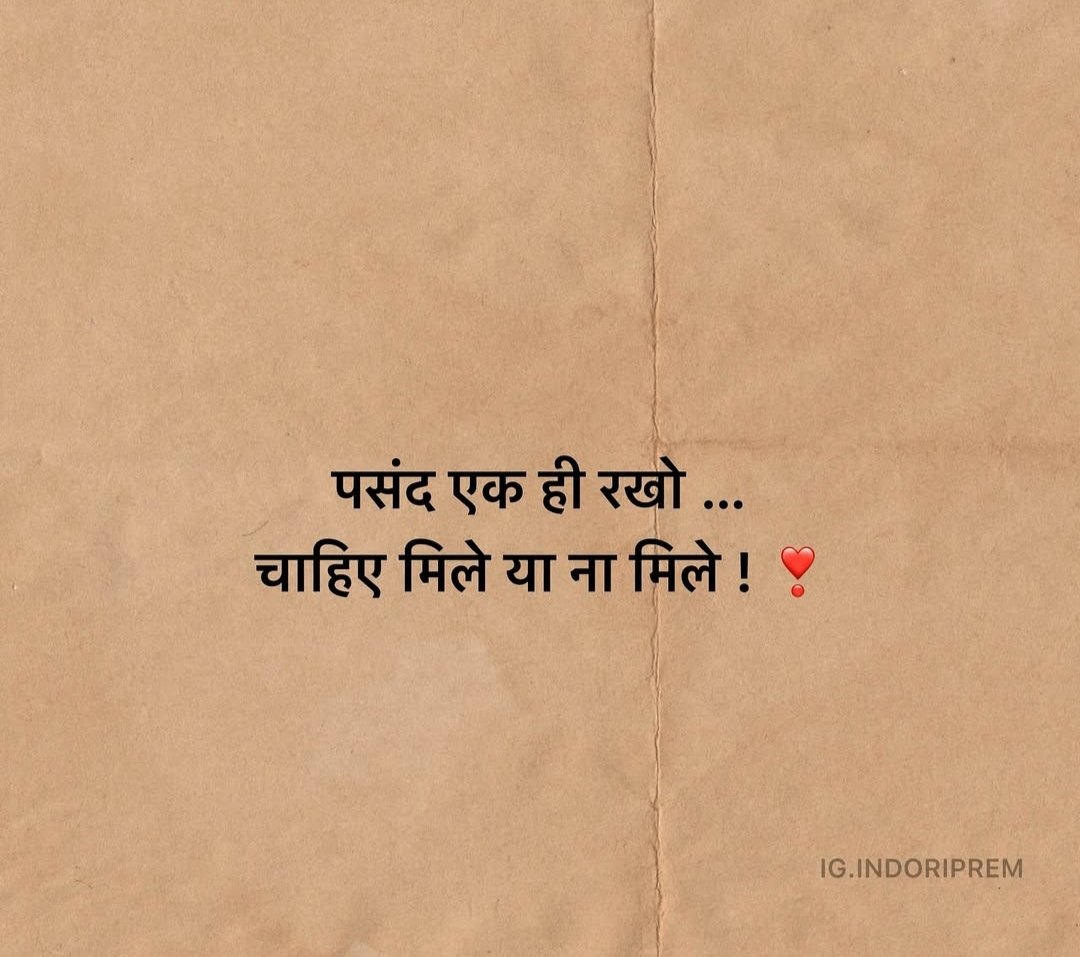 पसंद एक ही रखो ...
चाहिए मिले या ना मिले ! ❣️
IG.INDORIPREM